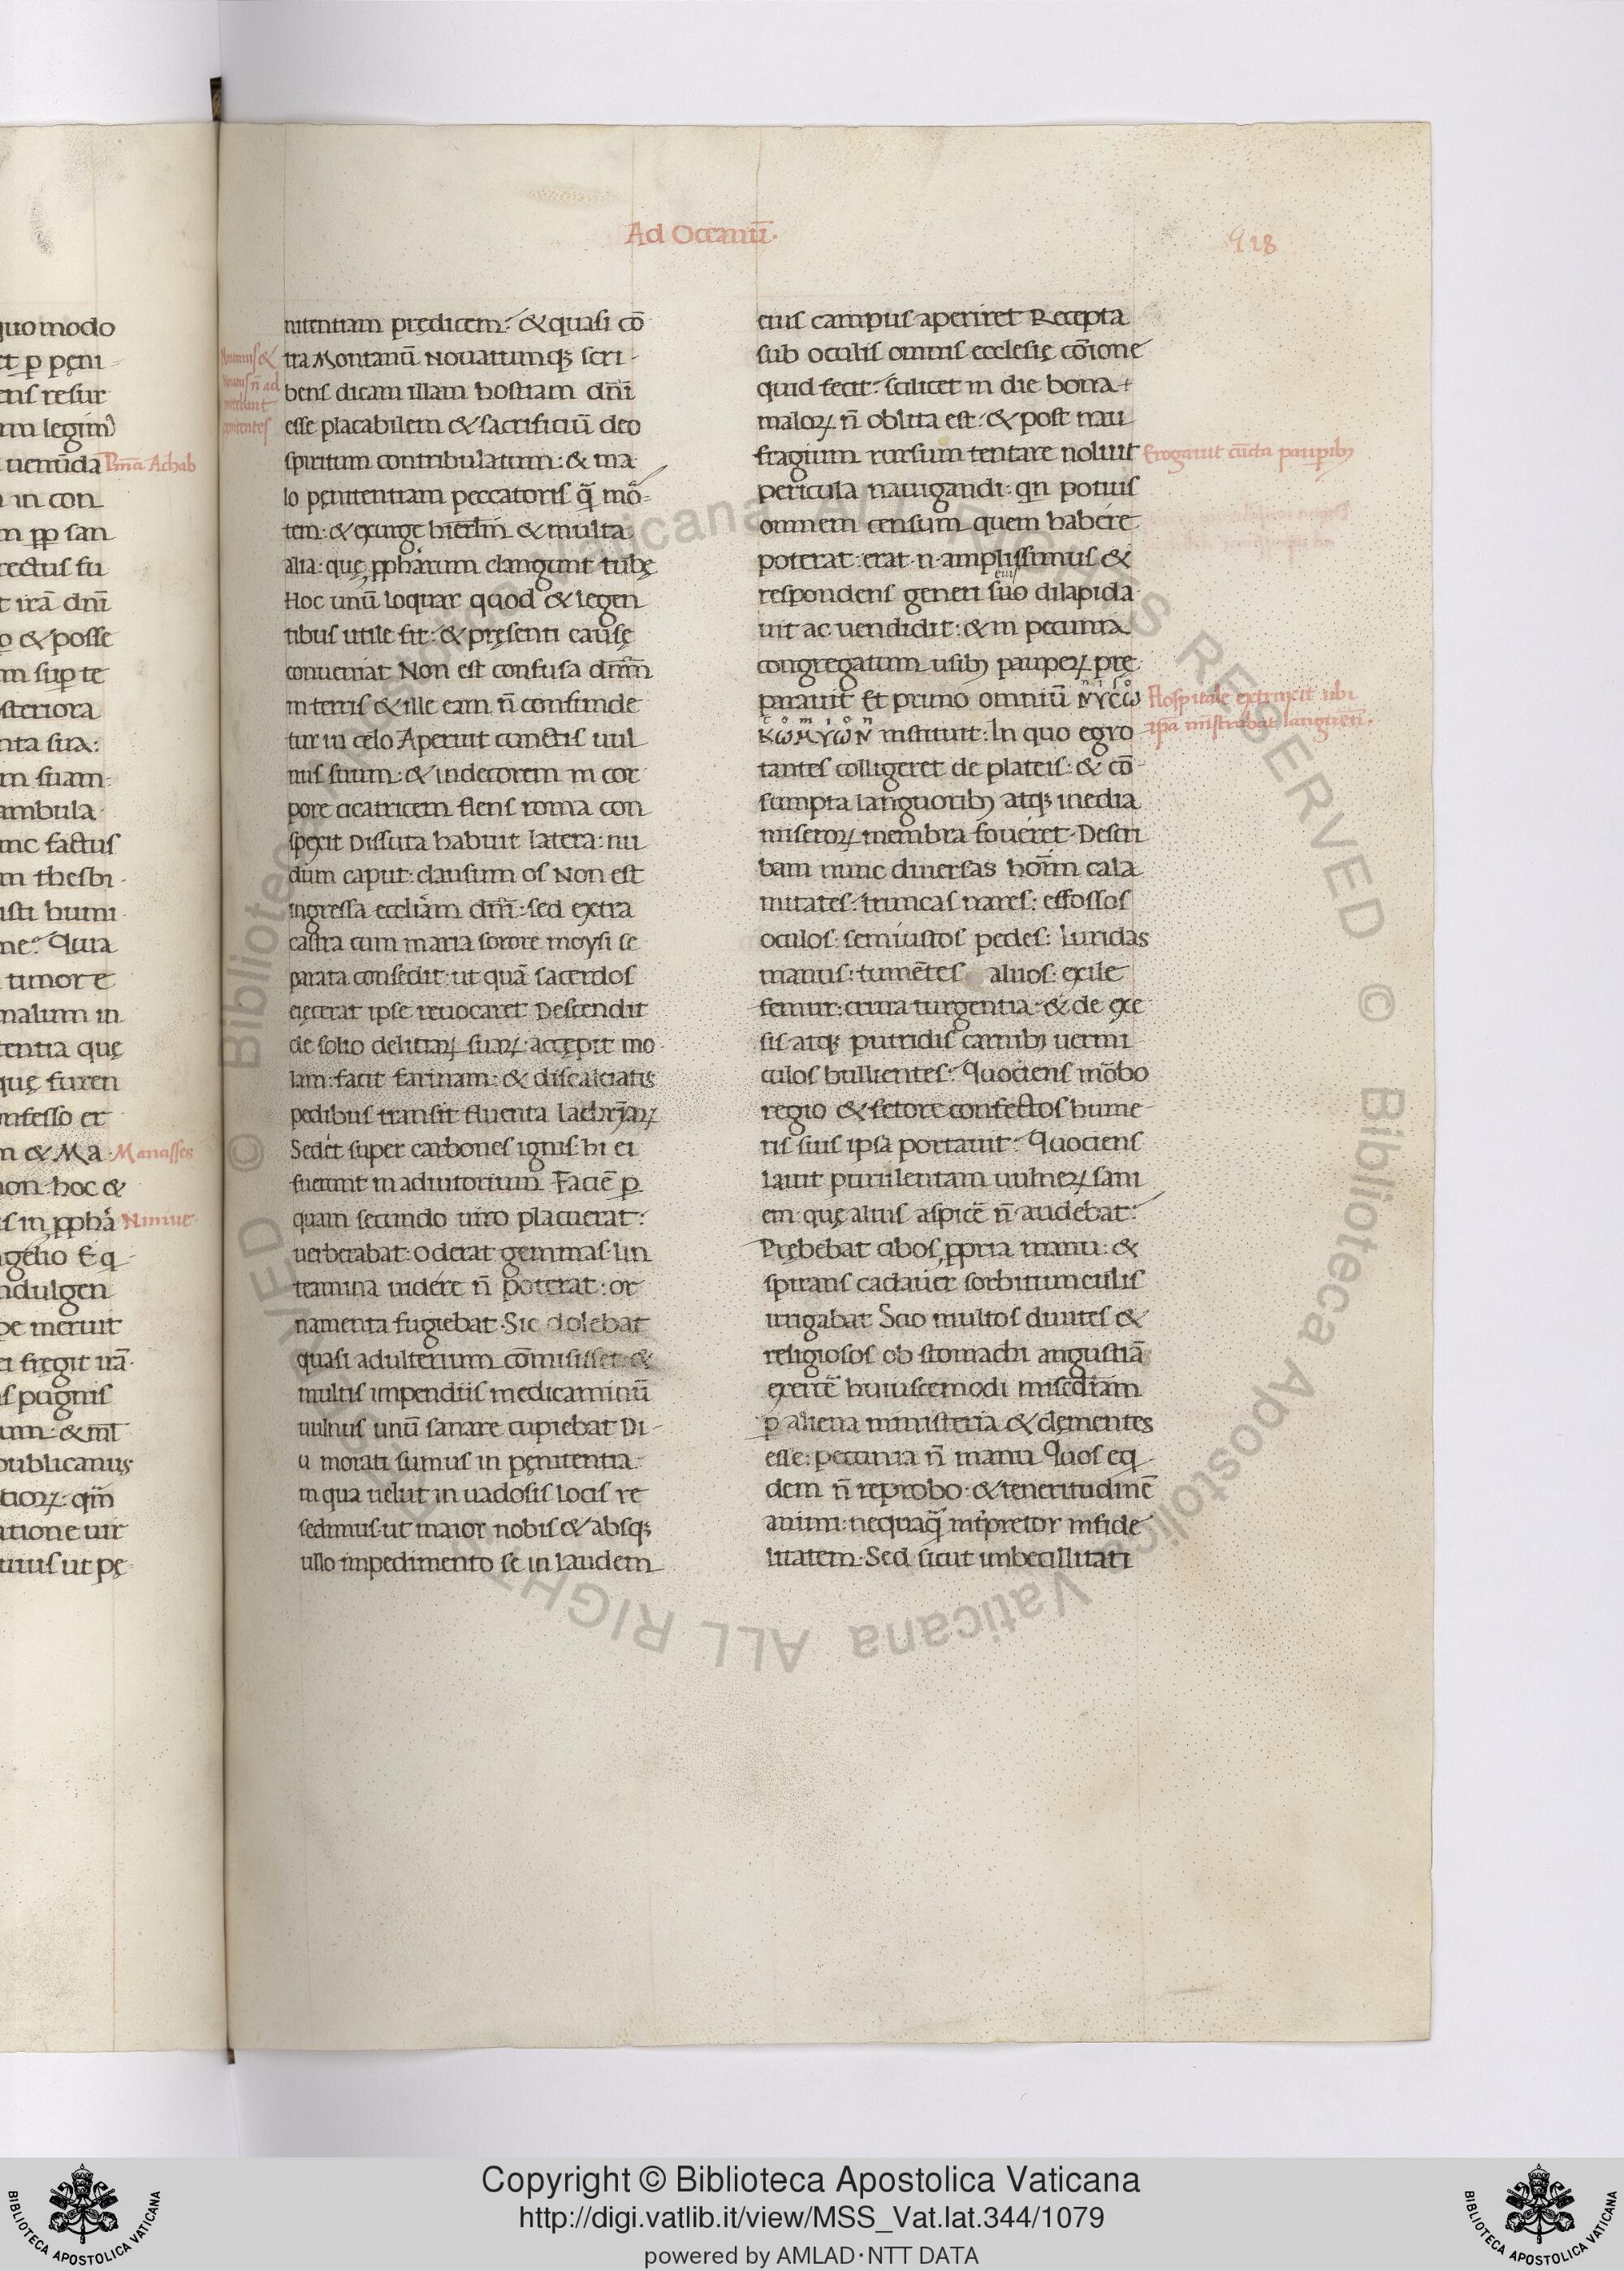 Ad Oceanū·
918
quomodo
ct p pęni
ens resur
m legim᷒
uenūda
Pn̄ia Achab
in con
m pp san
rectus fu
t irā dn̄i
o & posse
m sup te
steriora
nta sua:
m suam
ambula
nc factus
m thesbi
isti humi
me: Quia
timore
malum in
tentia quę
quę furen
nfesso et
m & Ma
Manasses
non: hoc &
is in ꝓphā
Niniue·
gelio Eq
ndulgen
be meruit
ei fręgit uā
is pugnis
um: & ml̄
publicanus
tioꝝ: qm̄
atione uir
uius ut pę
nitentiam prędicem: & quasi cō
tra Montanū Nouatumqꝫ scri
bens dicam illam hostiam dn̄i
esse placabilem & sacrificiū deo
spiritum contribulatum: & ma
lo pęnitentiam peccatoris q̄ mō
tem: & exurge hierl̄m & multa
alia: quę ꝓphārum clangunt tubę
Hoc unū loquar quod & legen
tibus utile sit: & pręsenti causę
conueniat Non est confusa dn̄m
in terris & ille eam n̄ confunde
tur in cęlo Aperuit cunctis uul
nus suum: & indecorem in cor
pore cicatricem flens roma con
spexit Dissuta habuit latera: nu
dum caput: clausum os Non est
ingressa eccliām dn̄i: sed extra
castra cum maria sorore moysi se
parata consedit: ut quā sacerdos
eiecerat ipse reuocaret Descendit
de solio delitiaꝝ suaꝝ: accępit mo
lam: facit farinam: & discalciatis
pedibus transit fluenta lachrȳaꝝ
Sedet super carbones ignis hi ei
fuerunt in adiutorium Faciē p
quam secundo uiro placuerat:
uerberabat: oderat gemmas: lin
teamina uidere n̄ poterat: or
namenta fugiebat Sic dolebat
quasi adulterium cōmisisset: &
multis impendiis medicaminū
uulnus unū sanare cupiebat Di
u morati sumus in pęnitentia
in qua uelut in uadosis locis re
sedimus: ut maior nobis & absqꝫ
ullo impedimento se in laudem
eius campus aperiret Recepta
sub oculis omnis ecclesię cōione
quid fecit: scilicet in die bona
maloꝝ n̄ oblita est: & post nau
fragium rursum tentare noluit
Erogauit cūcta paupibꝫ
pericula nauigandi: qn potius
omnem censum quem habere
poterat: erat·n·amplissimus &
respondens generi suo dilapida
eius
uit ac uendidit: & in pecunia
congregatum usibꝫ paupeꝝ prę
parauit Et primo omniū ΝΥСѠ
Hospitale extruxit ubi
ΚѠΜΥѠΝ instituit: In quo egro
ipā mīstrabat languen̄·
tantes colligeret de plateis: & cō
sumpta languoribꝫ atqꝫ inedia
miseroꝝ membra foueret· Descri
bam nunc diuersas hom̄ cala
mitates: truncas nares: effossos
oculos: semiustos pedes: luridas
manus: tumētes aluos: exile
femur: crura turgentia: & de exe
sis atqꝫ putridis carnibꝫ uermi
culos bullientes: Quociens mōbo
regio & fetore confectos hume
ris suis ipsa portauit: Quociens
lauit purulentam uulneꝝ sani
em: quę alius aspicē n̄ audebat:
Prębebat cibos ꝓpria manu: &
spirans cadauer sorbitiunculis
irrigabat Scio multos diuites &
religiosos ob stomachi angustiā
exercē huiuscemodi misediām
p aliena ministeria & clęmentes
esse: pecunia n̄ manu Quos eq
dem n̄ reprobo: & teneritudinē
animi: nequaq̄ int̄pretor infide
litatem: Sed sicut imbecillitati
Copyright © Biblioteca Apostolica Vaticana
http://digi.vatlib.it/view/MSS_Vat.lat.344/1079
powered by AMLAD·NTT DATA
BIBLIOTECA APOSTOLICA VATICANA
BIBLIOTECA APOSTOLICA VATICANA